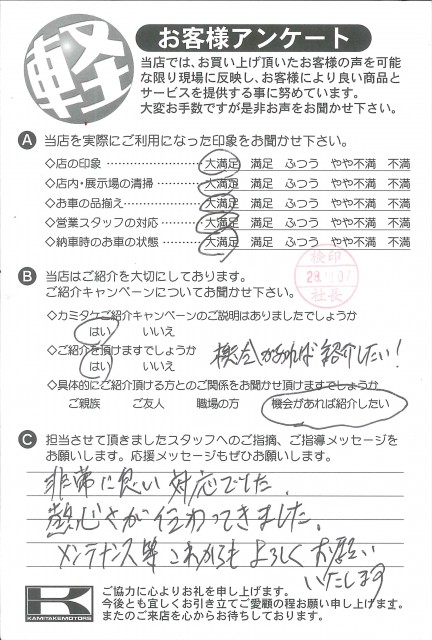 軽
お客様アンケート
当店では、お買い上げ頂いたお客様の声を可能
な限り現場に反映し、お客様により良い商品と
サービスを提供する事に努めています。
大変お手数ですが是非お声をお聞かせ下さい。
A 当店を実際にご利用になった印象をお聞かせ下さい。
◇店の印象 ………………… 大満足 満足 ふつう やや不満 不満
◇店内・展示場の清掃 ……… 大満足 満足 ふつう やや不満 不満
◇お車の品揃え……………… 大満足 満足 ふつう やや不満 不満
◇営業スタッフの対応 ……… 大満足 満足 ふつう やや不満 不満
◇納車時のお車の状態 ……… 大満足 満足 ふつう やや不満 不満
検印
社長
B 当店はご紹介を大切にしております。
ご紹介キャンペーンについてお聞かせ下さい。
◇カミタケご紹介キャンペーンのご説明はありましたでしょうか
はい いいえ
◇ご紹介を頂けますでしょうか
はい いいえ
機会があれば紹介したい!
◇具体的にご紹介頂ける方とのご関係をお聞かせ頂けますでしょうか
ご親族 ご友人 職場の方 機会があれば紹介したい
C 担当させて頂きましたスタッフへのご指摘、ご指導メッセージを
お願いします。応援メッセージもぜひお願いします。
非常に良い対応でした.
熱心さが伝わってきました.
メンテナンス等これからもよろしくお願い
いたします
K
KAMITAKEMOTORS
ご協力に心よりお礼を申し上げます。
今後とも宜しくお引き立てご愛顧の程お願い申し上げます。
またのご来店を心からお待ちしております。